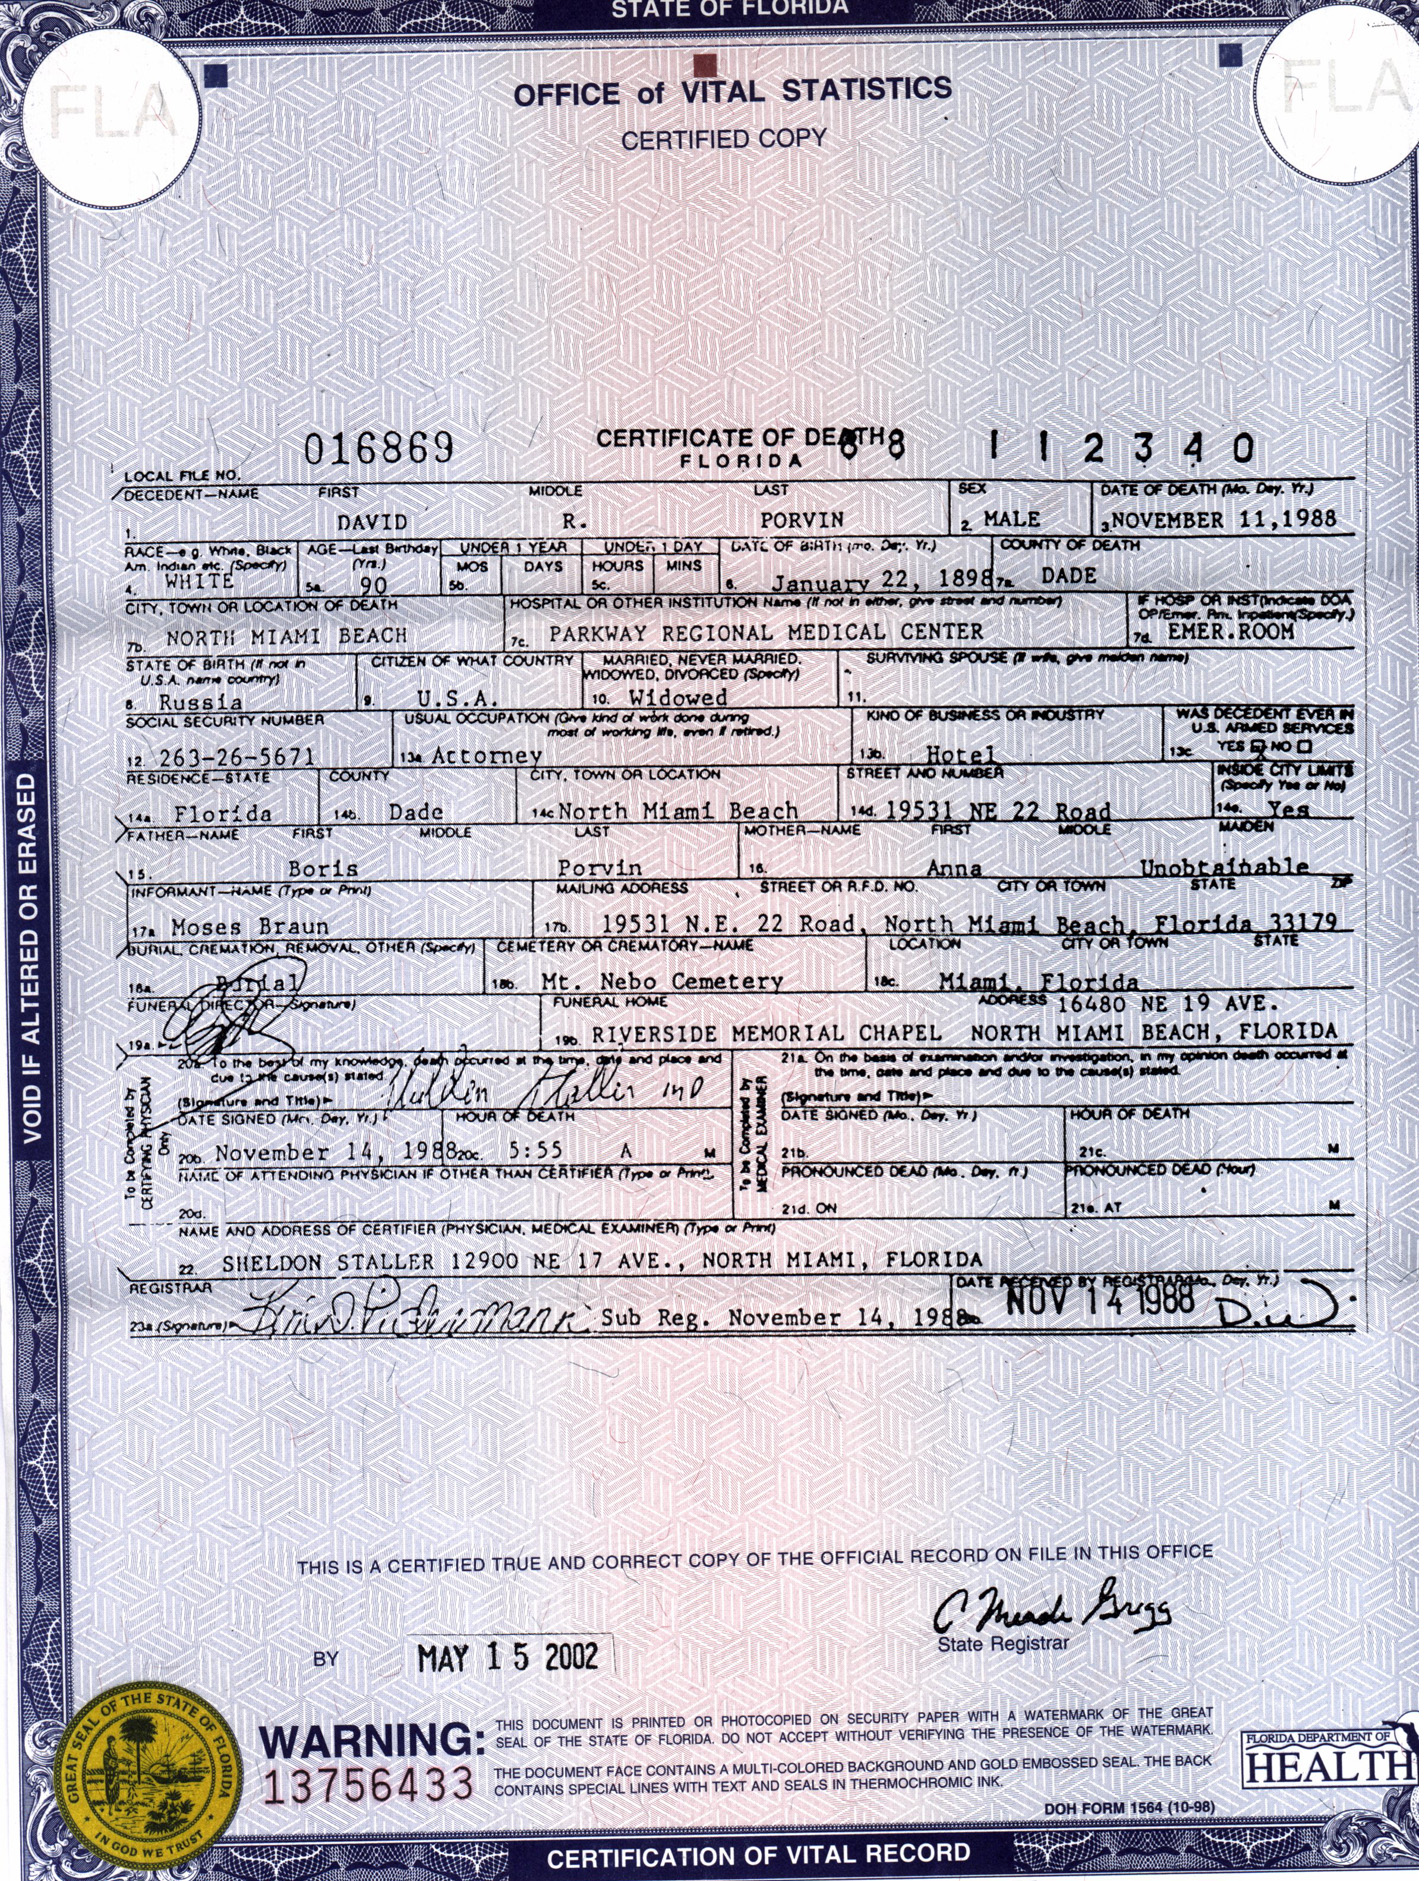 STATE OF FLORIDA
FLA
FLA
OFFICE of VITAL STATISTICS
CERTIFIED COPY
VOID IF ALTERED OR ERASED
016869
CERTIFICATE OF DEATH
FLORIDA
88 112340
LOCAL FILE NO.
DECEDENT—NAME FIRST MIDDLE LAST SEX DATE OF DEATH (Mo. Day. Yr.)
1. DAVID R. PORVIN 2. MALE 3. NOVEMBER 11,1988
RACE—e.g. White, Black AGE—Last Birthday UNDER 1 YEAR UNDER 1 DAY DATE OF BIRTH (mo. Day. Yr.) COUNTY OF DEATH
Am. Indian etc. (Specify) (Yrs.) MOS DAYS HOURS MINS
4. WHITE 5a. 90 5b. 5c. 6. January 22, 1898 7a. DADE
CITY, TOWN OR LOCATION OF DEATH HOSPITAL OR OTHER INSTITUTION Name (If not in either, give street and number) IF HOSP OR INST(Indicate DOA
OP/Emer. Rm. Inpatient(Specify.)
7b. NORTH MIAMI BEACH 7c. PARKWAY REGIONAL MEDICAL CENTER 7d. EMER.ROOM
STATE OF BIRTH (If not in CITIZEN OF WHAT COUNTRY MARRIED, NEVER MARRIED. SURVIVING SPOUSE (If wife, give maiden name)
U.S.A. name country) WIDOWED, DIVORCED (Specify)
8. Russia 9. U.S.A. 10. Widowed 11.
SOCIAL SECURITY NUMBER USUAL OCCUPATION (Give kind of work done during KIND OF BUSINESS OR INDUSTRY WAS DECEDENT EVER IN
most of working life, even if retired.) U.S. ARMED SERVICES
12. 263-26-5671 13a Attorney 13b. Hotel 13c. YES NO
RESIDENCE—STATE COUNTY CITY, TOWN OR LOCATION STREET AND NUMBER INSIDE CITY LIMITS
(Specify Yes or No)
14a. Florida 14b. Dade 14c North Miami Beach 14d. 19531 NE 22 Road 14e. Yes
FATHER—NAME FIRST MIDDLE LAST MOTHER—NAME FIRST MIDDLE MAIDEN
15. Boris Porvin 16. Anna Unobtainable
INFORMANT—NAME (Type or Print) MAILING ADDRESS STREET OR R.F.D. NO. CITY OR TOWN STATE ZIP
17a Moses Braun 17b. 19531 N.E. 22 Road, North Miami Beach, Florida 33179
BURIAL, CREMATION, REMOVAL, OTHER (Specify) CEMETERY OR CREMATORY—NAME LOCATION CITY OR TOWN STATE
18a. Burial 18b. Mt. Nebo Cemetery 18c. Miami, Florida
FUNERAL DIRECTOR—Signature) FUNERAL HOME ADDRESS 16480 NE 19 AVE.
19a. 19b. RIVERSIDE MEMORIAL CHAPEL NORTH MIAMI BEACH, FLORIDA
To be Completed by CERTIFYING PHYSICIAN Only
20a. To the best of my knowledge, death occurred at the time, date and place and
due to the cause(s) stated.
(Signature and Title) Sheldon Staller MD
DATE SIGNED (Mo., Day, Yr.) HOUR OF DEATH
20b. November 14, 1988 20c. 5:55 A M
NAME OF ATTENDING PHYSICIAN IF OTHER THAN CERTIFIER (Type or Print)
20d.
To be Completed by MEDICAL EXAMINER
21a. On the basis of examination and/or investigation, in my opinion death occurred at
the time, date and place and due to the cause(s) stated.
(Signature and Title)
DATE SIGNED (Mo., Day, Yr.) HOUR OF DEATH
21b. 21c. M
PRONOUNCED DEAD (Mo., Day, Yr.) PRONOUNCED DEAD (Hour)
21d. ON 21e. AT M
NAME AND ADDRESS OF CERTIFIER (PHYSICIAN, MEDICAL EXAMINER) (Type or Print)
22. SHELDON STALLER 12900 NE 17 AVE., NORTH MIAMI, FLORIDA
REGISTRAR DATE RECEIVED BY REGISTRAR(Mo., Day, Yr.)
23a (Signature) Sub Reg. November 14, 1988 NOV 14 1988
THIS IS A CERTIFIED TRUE AND CORRECT COPY OF THE OFFICIAL RECORD ON FILE IN THIS OFFICE
C Meade Grigg
State Registrar
BY MAY 15 2002
GREAT SEAL OF THE STATE OF FLORIDA
IN GOD WE TRUST
WARNING:
13756433
THIS DOCUMENT IS PRINTED OR PHOTOCOPIED ON SECURITY PAPER WITH A WATERMARK OF THE GREAT
SEAL OF THE STATE OF FLORIDA. DO NOT ACCEPT WITHOUT VERIFYING THE PRESENCE OF THE WATERMARK.
THE DOCUMENT FACE CONTAINS A MULTI-COLORED BACKGROUND AND GOLD EMBOSSED SEAL. THE BACK
CONTAINS SPECIAL LINES WITH TEXT AND SEALS IN THERMOCHROMIC INK.
DOH FORM 1564 (10-98)
FLORIDA DEPARTMENT OF
HEALTH
CERTIFICATION OF VITAL RECORD